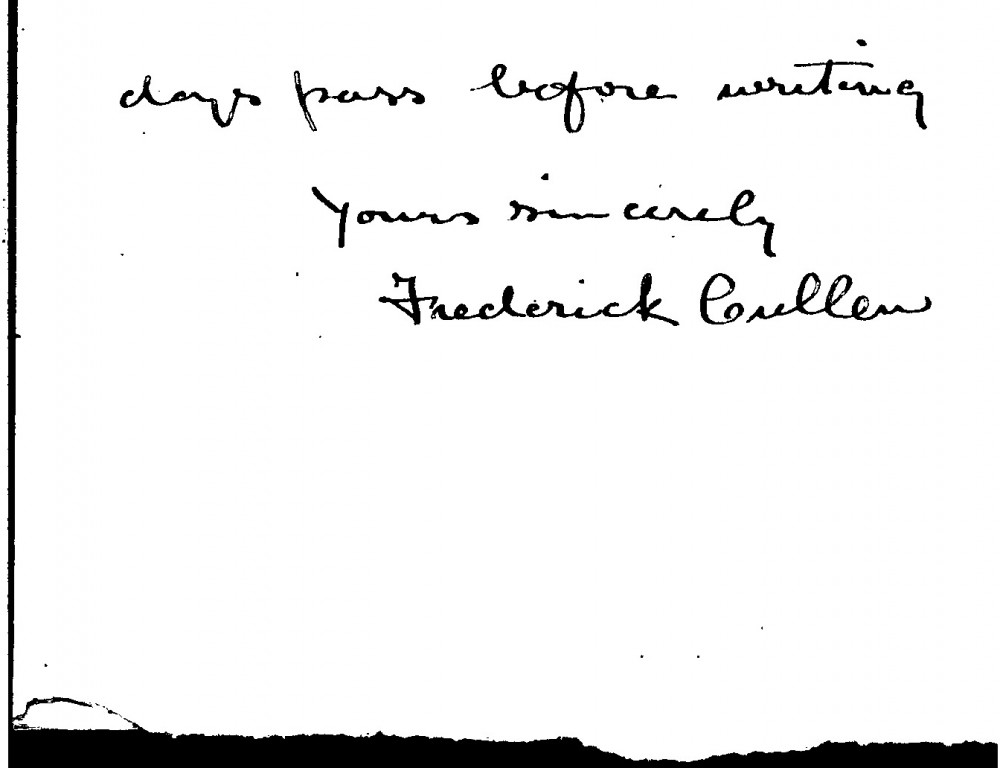 days pass before writing
Yours sincerely
Frederick Cullen